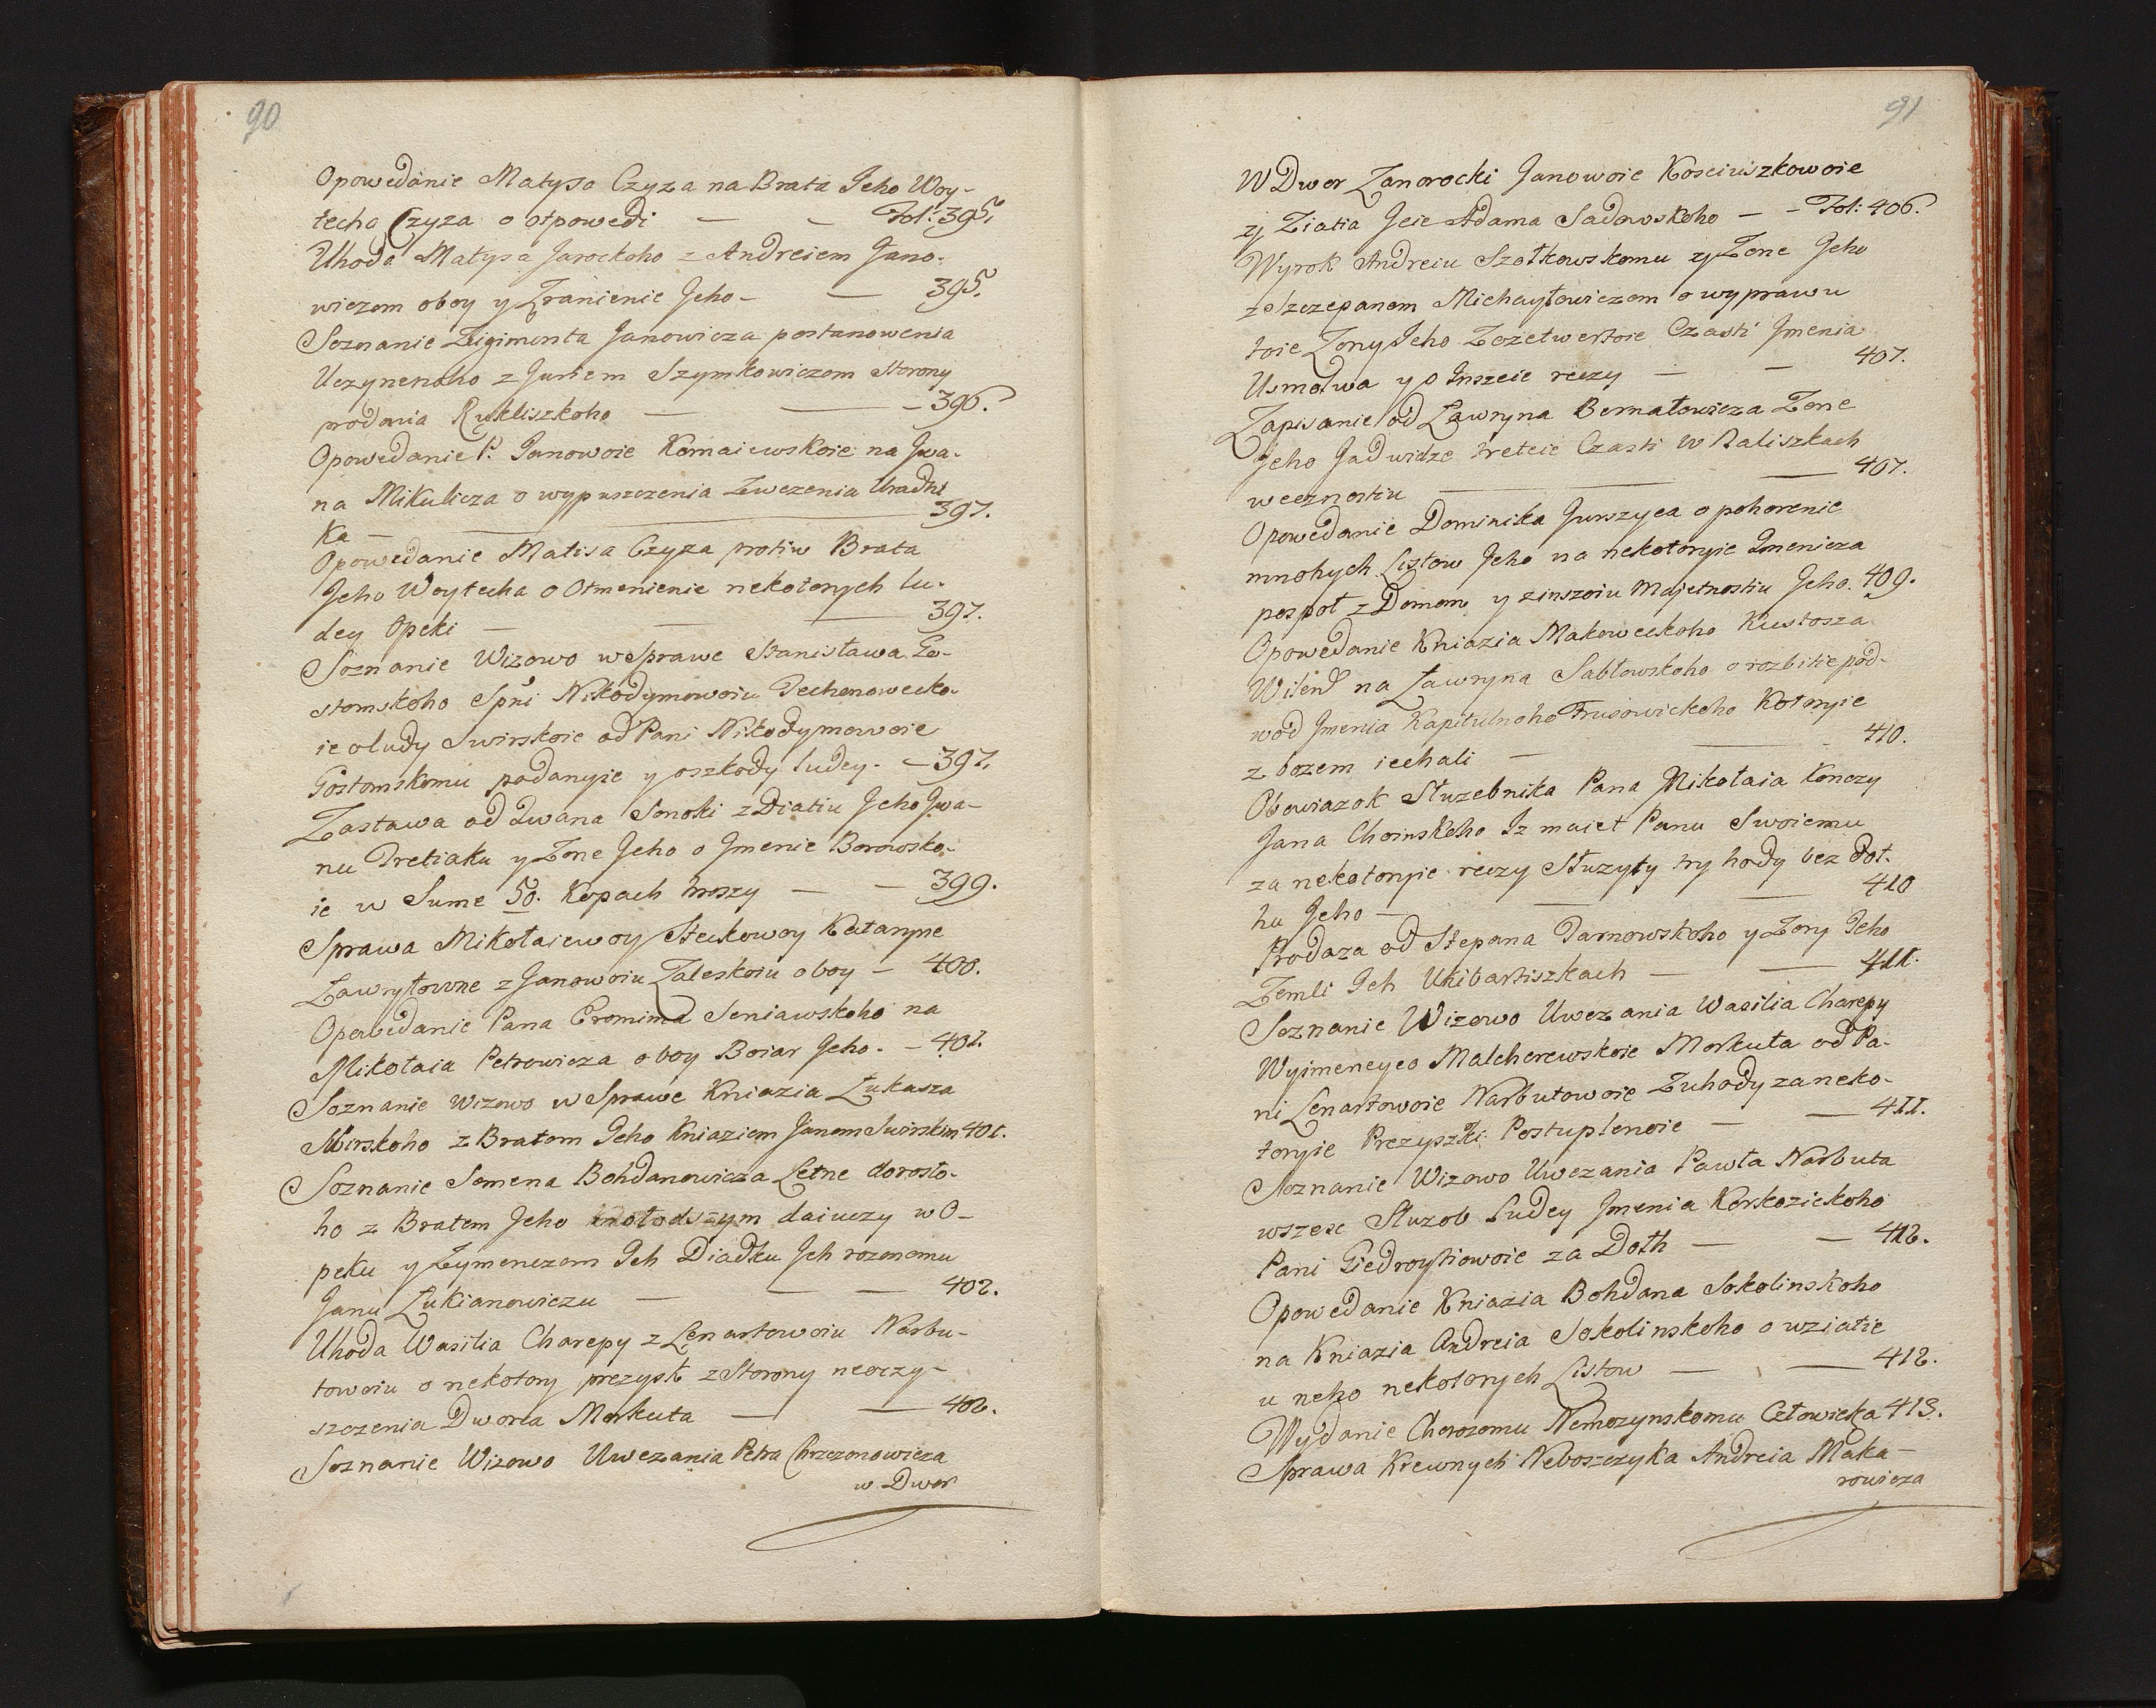 90
Opowedanie Matysa Czyza na Brata Jeho Woy-
techa Czyza o otpowedi — — Fol: 395.
Uhoda Matysa Jarockoho z Andreiem Jano-
wiczom oboy y Zranienie Jeho — — 395.
Soznanie Zigimonta Janowicza postanowenia
Uczynenoho z Juriem Szymkowiczom storony
prodania Rukliszkoho — — — 396.
Opowedanie P. Janowoie Komaiewskoie na Jwa-
na Mikulicza o wypuszczenia Zwezenia Uradni
ka — — 397.
Opowedanie Matisa Czyza protiw Brata
Jeho Woytecha o Otmenienie nekotorych lu-
dey Opeki — — — 397.
Soznanie Wizowo w Sprawe Stanisława Go-
stomskoho Spni Nikodymowoiu Techonowecko-
ie o ludy Swirskoie od Pani Nikodymowoie
Gostomskomu podanyie y oszkody ludey. — 397.
Zastawa od Iwana Sonoki z Diatiu Jeho Jwa-
nu Tretiaku y Zone Jeho o Jmenie Borowsko-
ie w Sume 50. Kopach hroszy — — 399.
Sprawa Mikołaiewoy Steckowoy Kataryne
Ławryłowne z Janowoiu Zaleskoiu o boy — 400.
Opowedanie Pana Eronima Seniawskoho na
Mikołaia Petrowicza o boy Boiar Jeho. — 401.
Soznanie wizowo w Sprawe Kniazia Łukasza
Swirskoho z Bratom Jeho Kniaziem Janom Swirskim 401.
Soznanie Semena Bohdanowicza Letne dorosło-
ho z Bratem Jeho mołodszym daiuczy w O-
peku y Zymenczom Jch Diadku Jch rozonomu
Janu Łukianowiczu — — — 402.
Uhoda Wasilia Charepy z Lenartowoiu Narbu-
towoiu o nekotory prezysk z Storony neoczy-
szczenia Dworca Morkuta — — 402.
Soznanie Wizowo Uwezania Petra Chrzczonowicza
w Dwor
91
W Dwor Zanorocki Janowoie Kosciuszkowoie
zy Ziatia Jeie Adama Sadowskoho — — Fol: 406.
Wyrok Andreiu Szołkowskomu zy Zone Jeho
z Szczepanom Michayłowiczom o wyprawu
toie Zony Jeho Zozetwertoie Czasti Jmenia
Usmołwa y o Jnszeie reczy — — 407.
Zapisanie od Ławryna Bernatowicza Zone
Jeho Jadwidze treteie Czasti w Raliszkach
weeznostiu — — 407.
Opowedanie Dominika Jurszyca o pohorenie
mnohych Listow Jeho na nekotoryie Jmenicza
pospoł z Domom y zinszoiu Majetnostiu Jeho. 409.
Opowedanie Kniazia Makoweckoho Kustosza
Wilen na Ławryna Sabłowskoho o rozbitie pod-
wod Jmenia Kapitulnoho Trusowickoho Kotoryie
z bozem iechali — — 410.
Obowiazok Słuzebnika Pana Mikołaia Konczy
Jana Choinskoho Jz maiet Panu Swoiemu
za nekotoryie reczy Słuzyty try hody bez Doł-
hu Jeho — — — 410
Prodaza od Stepana Tarnowskoho y Zony Jeho
Zemli Jch Ukibartiszkach — — 411.
Soznanie Wizowo Uwezania Wasilia Charepy
Wyimeneyeo Malcherewskoie Morkuta od Pa-
ni Lenartowoie Narbutowoie Zuhody za neko-
toryie Prezyszki Postuplenoie — — 411.
Soznanie Wizowo Uwezania Pawła Narbuta
wszesc Słuzob Ludey Jmenia Korskozickoho
Pani Giedroytiowoie za Dołh — — 412.
Opowedanie Kniazia Bohdana Sokolinskoho
na Kniazia Andreia Sokolinskoho o wziatie
u neho nekotorych Listow — — 412.
Wydanie Chorozomu Nemozynskomu Człowieka 413.
Sprawa Krewnych Neboszczyka Andreia Maka-
rowicza